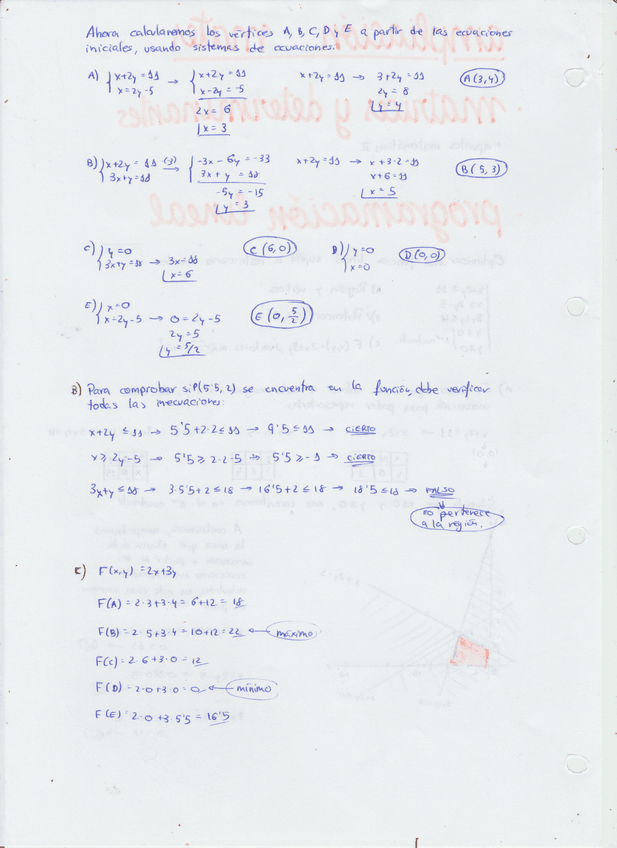 Ahora calcularemos los vértices A, B, C, D y E a partir de las ecuaciones
iniciales, usando sistemas de ecuaciones:
A) { x+2y = 11 → { x+2y = 11 x+2y = 11 → 3+2y = 11 A(3,4)
x = 2y-5 x-2y = -5 2y = 8
2x = 6 y = 4
x = 3
B) { x+2y = 11 ·(-3) → { -3x - 6y = -33 x+2y = 11 → x+3·2 = 11 B(5,3)
3x+y = 18 3x + y = 18 x+6 = 11
-5y = -15 x = 5
y = 3
C) { y = 0 C(6,0) D) { y = 0 D(0,0)
3x+y = 18 → 3x = 18 x = 0
x = 6
E) { x = 0 E(0, 5/2)
x = 2y-5 → 0 = 2y-5
2y = 5
y = 5/2
B) Para comprobar si P(5'5, 2) se encuentra en la función, debe verificar
todas las inecuaciones:
x+2y ≤ 11 → 5'5+2·2 ≤ 11 → 9'5 ≤ 11 → CIERTO
x ≥ 2y-5 → 5'5 ≥ 2·2-5 → 5'5 ≥ -1 → CIERTO
3x+y ≤ 18 → 3·5'5+2 ≤ 18 → 16'5+2 ≤ 18 → 18'5 ≤ 18 → FALSO
no pertenece
a la región.
C) F(x,y) = 2x+3y
F(A) = 2·3+3·4 = 6+12 = 18
F(B) = 2·5+3·4 = 10+12 = 22 ← máximo
F(C) = 2·6+3·0 = 12
F(D) = 2·0+3·0 = 0 ← mínimo
F(E) = 2·0+3·5'5 = 16'5